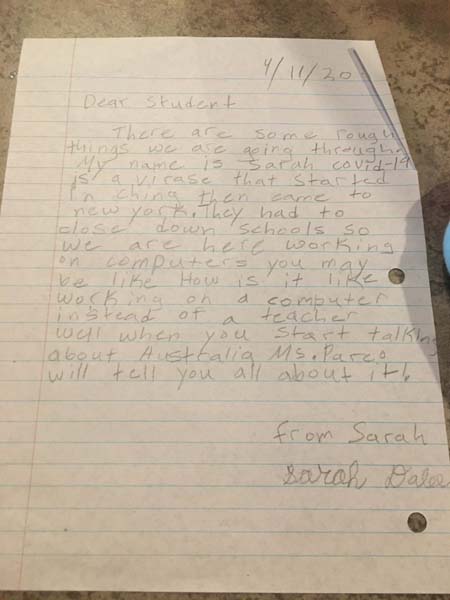 4/11/20
Dear Student
There are some rough
things we are going through.
My name is Sarah covid-19
is a virase that started
in ching then came to
new york. They had to
close down schools so
we are here working
on computers you may
be like How is it like
working on a computer
instead of a teacher
well when you start talking
about Australia Ms. Pareo
will tell you all about it!.
from Sarah
Sarah